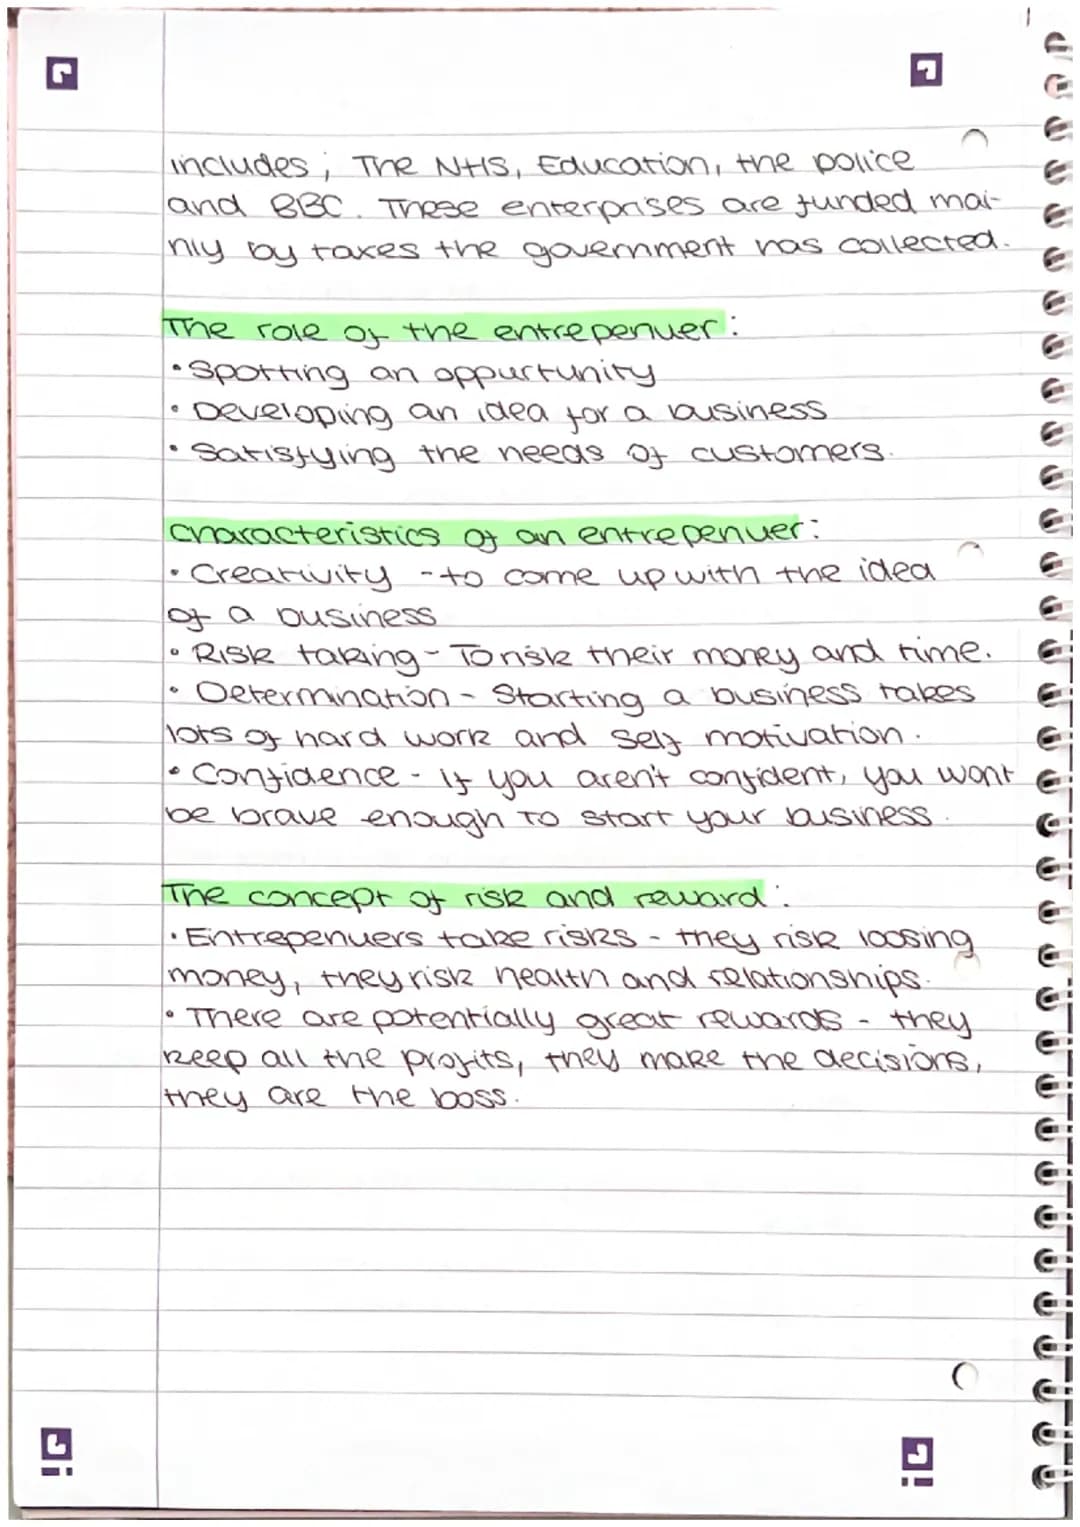 includes; The NHS, Education, the police
and BBC. These enterprises are funded mai-
nly by taxes the government has collected.
The role of the entrepenuer:
• Spotting an oppurtunity
• Developing an idea for a business
• Satisfying the needs of customers.
Characteristics of an entrepenuer:
• Creativity - to come up with the idea
of a business
• Risk taking - To risk their money and time.
• Determination - Starting a business takes
lots of hard work and self motivation.
• Confidence - If you aren't confident, you wont
be brave enough to start your business.
The concept of risk and reward:
• Entrepenuers take risks - they risk loosing
money, they risk health and relationships.
• There are potentially great rewards - they
keep all the profits, they make the decisions,
they are the boss.